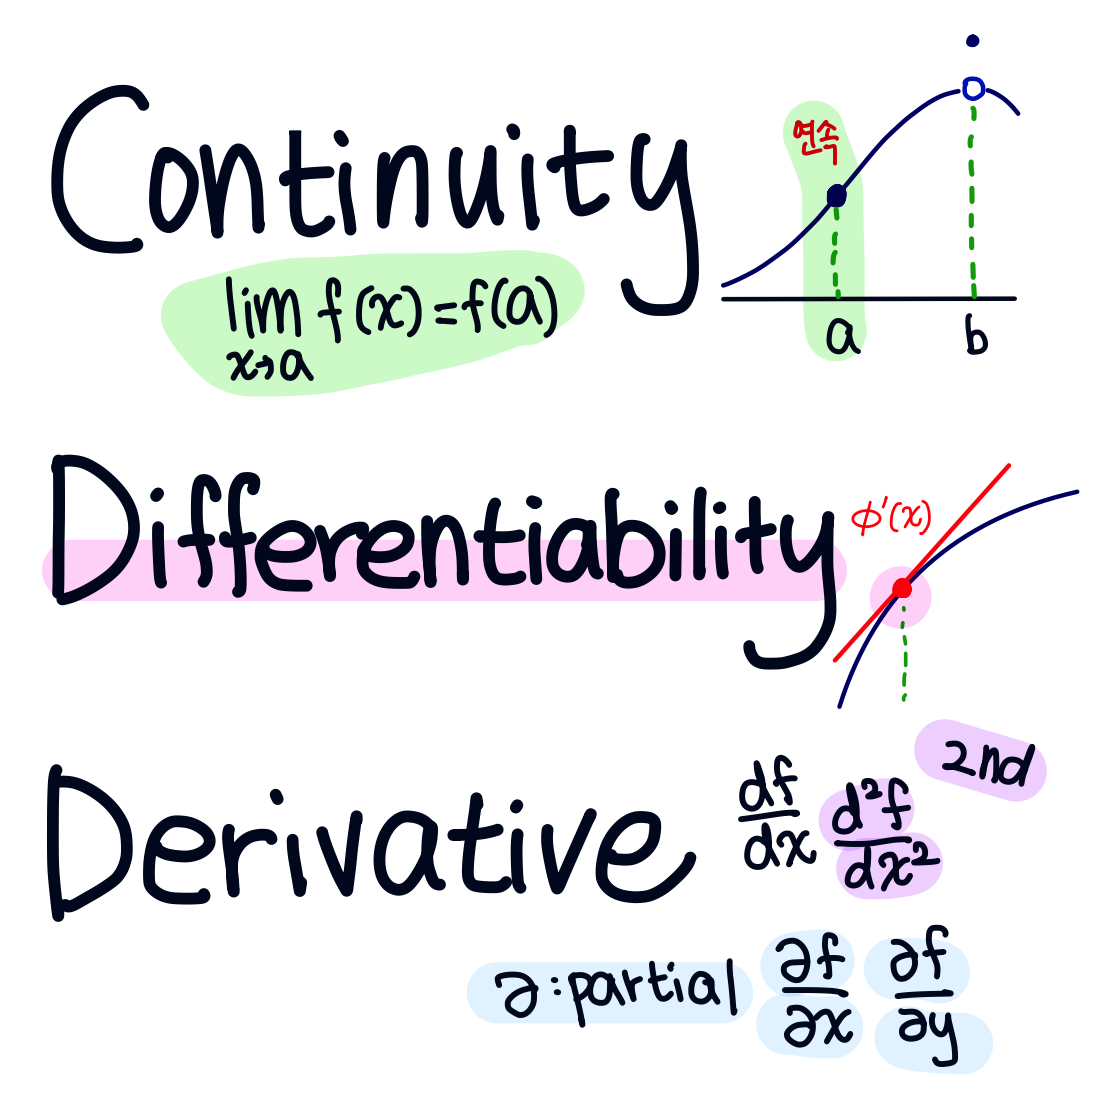 Continuity
연속
lim f(x)=f(a)
x→a
a
b
Differentiability
φ'(x)
Derivative
df/dx
d²f/dx²
2nd
∂:partial
∂f/∂x
∂f/∂y